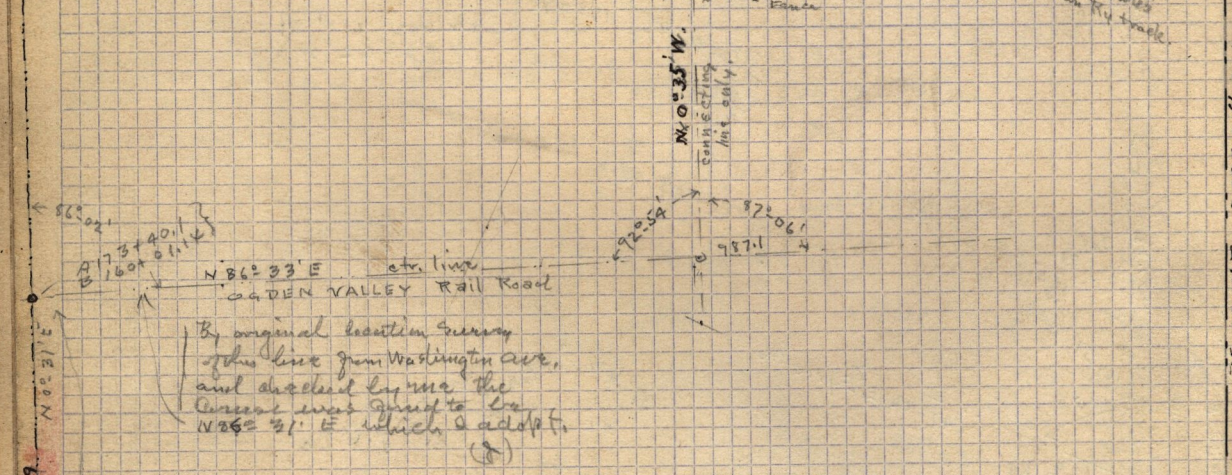 Fence
on Ry track.
N. 0°35' W.
connecting
line only.
86°02'
A 173+40.1
B 160+01.14
92°54'
87°06'
987.1 4
N 86° 33' E ctr. line
OGDEN VALLEY Rail Road
N 0° 31' E
By original location Survey
of this line from Washington ave,
and checked by me the
Course was found to be
N 86° 31' E which I adopt.